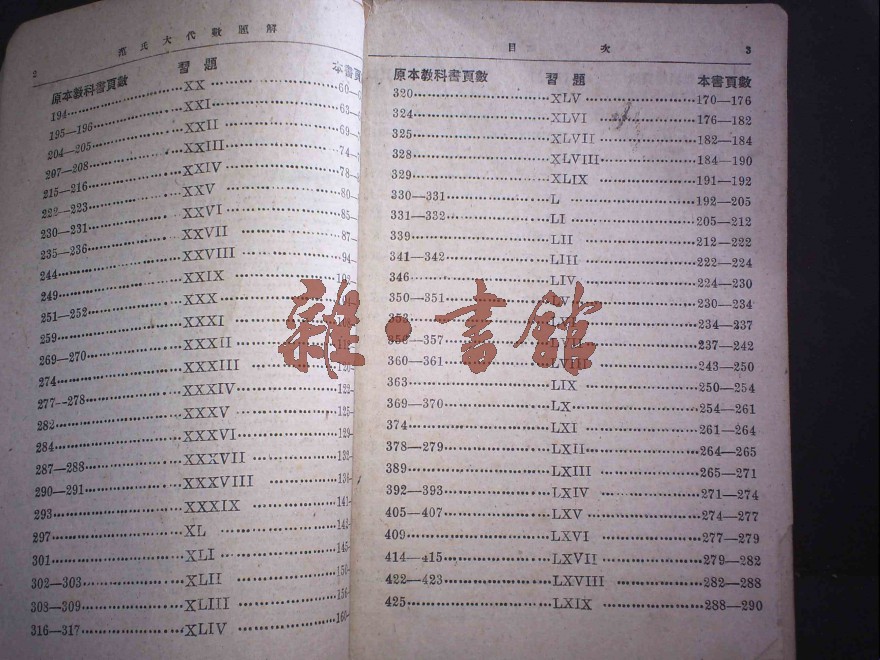 2 范氏大代數題解
原本教科書頁數 習題 本書頁
194 XX 60
195—196 XXI 63
204—205 XXII 69
207—208 XXIII 74
215—216 XXIV 78
222—223 XXV 80
230—231 XXVI 85
235—236 XXVII 87
244 XXVIII 94
249 XXIX
251—252 XXX
259 XXXI
269—270 XXXII
274 XXXIII
277—278 XXXIV 122
282 XXXV 125
284 XXXVI 129
287—288 XXXVII
290—291 XXXVIII
293 XXXIX 141
297 XL
301 XLI 145
302—303 XLII 150
308—309 XLIII 156
316—317 XLIV 160
目次 3
原本教科書頁數 習題 本書頁數
320 XLV 170—176
324 XLVI 176—182
325 XLVII 182—184
328 XLVIII 184—190
329 XLIX 191—192
330—331 L 192—205
331—332 LI 205—212
339 LII 212—222
341—342 LIII 222—224
346 LIV 224—230
350—351 LV 230—234
353 LVI 234—237
356—357 LVII 237—242
360—361 LVIII 243—250
363 LIX 250—254
369—370 LX 254—261
374 LXI 261—264
378—279 LXII 264—265
389 LXIII 265—271
392—393 LXIV 271—274
405—407 LXV 274—277
409 LXVI 277—279
414—415 LXVII 279—282
422—423 LXVIII 282—288
425 LXIX 288—290
雜·書館